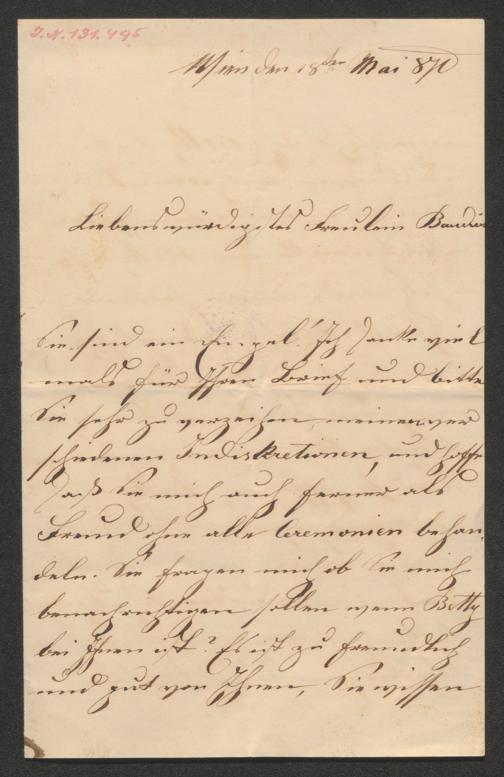 I.N. 131.495
Wien den 18ten Mai 870
Liebenswürdigstes Freulein
Sie sind ein Engel! Ich danke viel
mals für Ihren Brief und bitte
Sie sehr zu verzeihen, meinen ver
schiedenen Indiskretionen, und hoffe
daß Sie mich auch ferner als
Freund ohne alle Ceremonien behan,
deln. Sie fragen mich ob Sie mich
benachrichtigen sollen wenn Betty
bei Ihnen ist? Es ist zu freundlich
und gut von Ihnen, Sie wissen